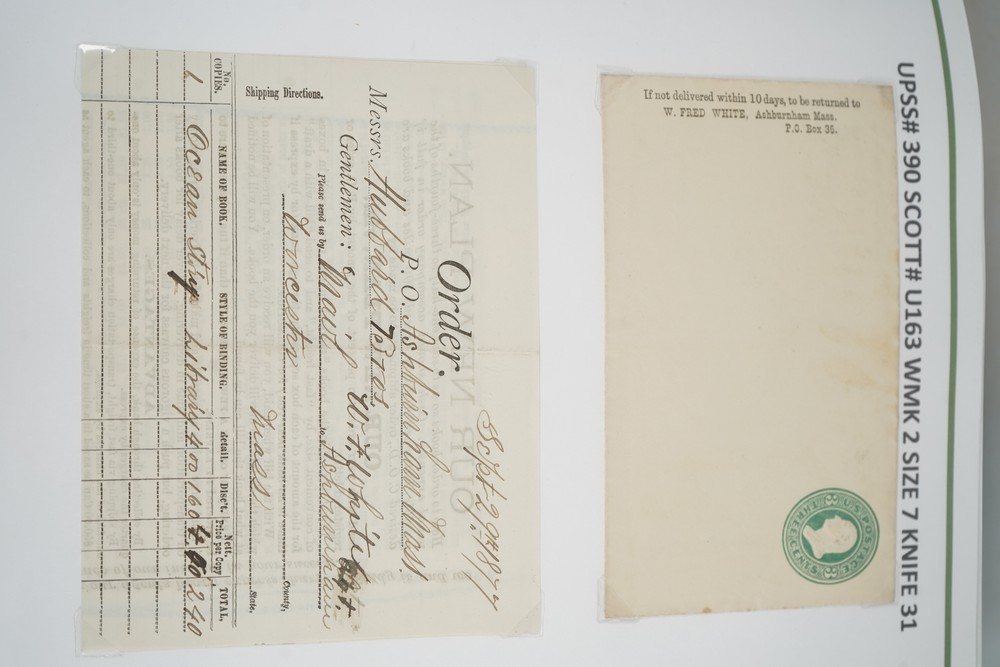 UPSS# 390 SCOTT# U163 WMK 2 SIZE 7 KNIFE 31
If not delivered within 10 days, to be returned to
W. FRED WHITE, Ashburnham Mass.
P.O. Box 35.
U.S. POSTAGE
THREE CENTS
3 3
Sept. 29th 1877
Order.
P. O. Ashburnham Mass.
Messrs. Hubbard Bros
Gentlemen: W. F. White
Please send us by Mail to Ashburnham
Worcester County,
Shipping Directions. Mass State.
No. COPIES. NAME OF BOOK. STYLE OF BINDING. Retail. Disc't. Nett. Price per Copy TOTAL,
1 Ocean Library 4 00 160 240